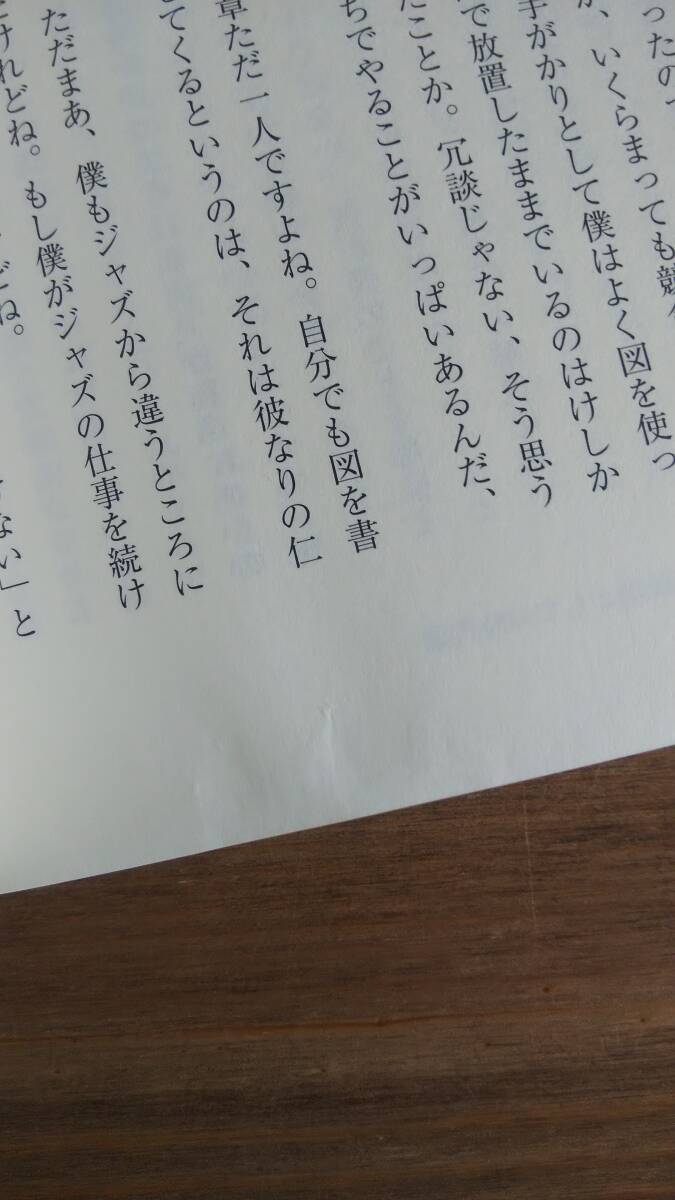 ったの
、いくらまっても競々
手がかりとして僕はよく図を使っ
で放置したままでいるのはけしか
たことか。冗談じゃない、そう思う
ちでやることがいっぱいあるんだ、
章ただ一人ですよね。自分でも図を書
てくるというのは、それは彼なりの仁
ただまあ、僕もジャズから違うところに
けれどね。もし僕がジャズの仕事を続け
どね。
ない」と